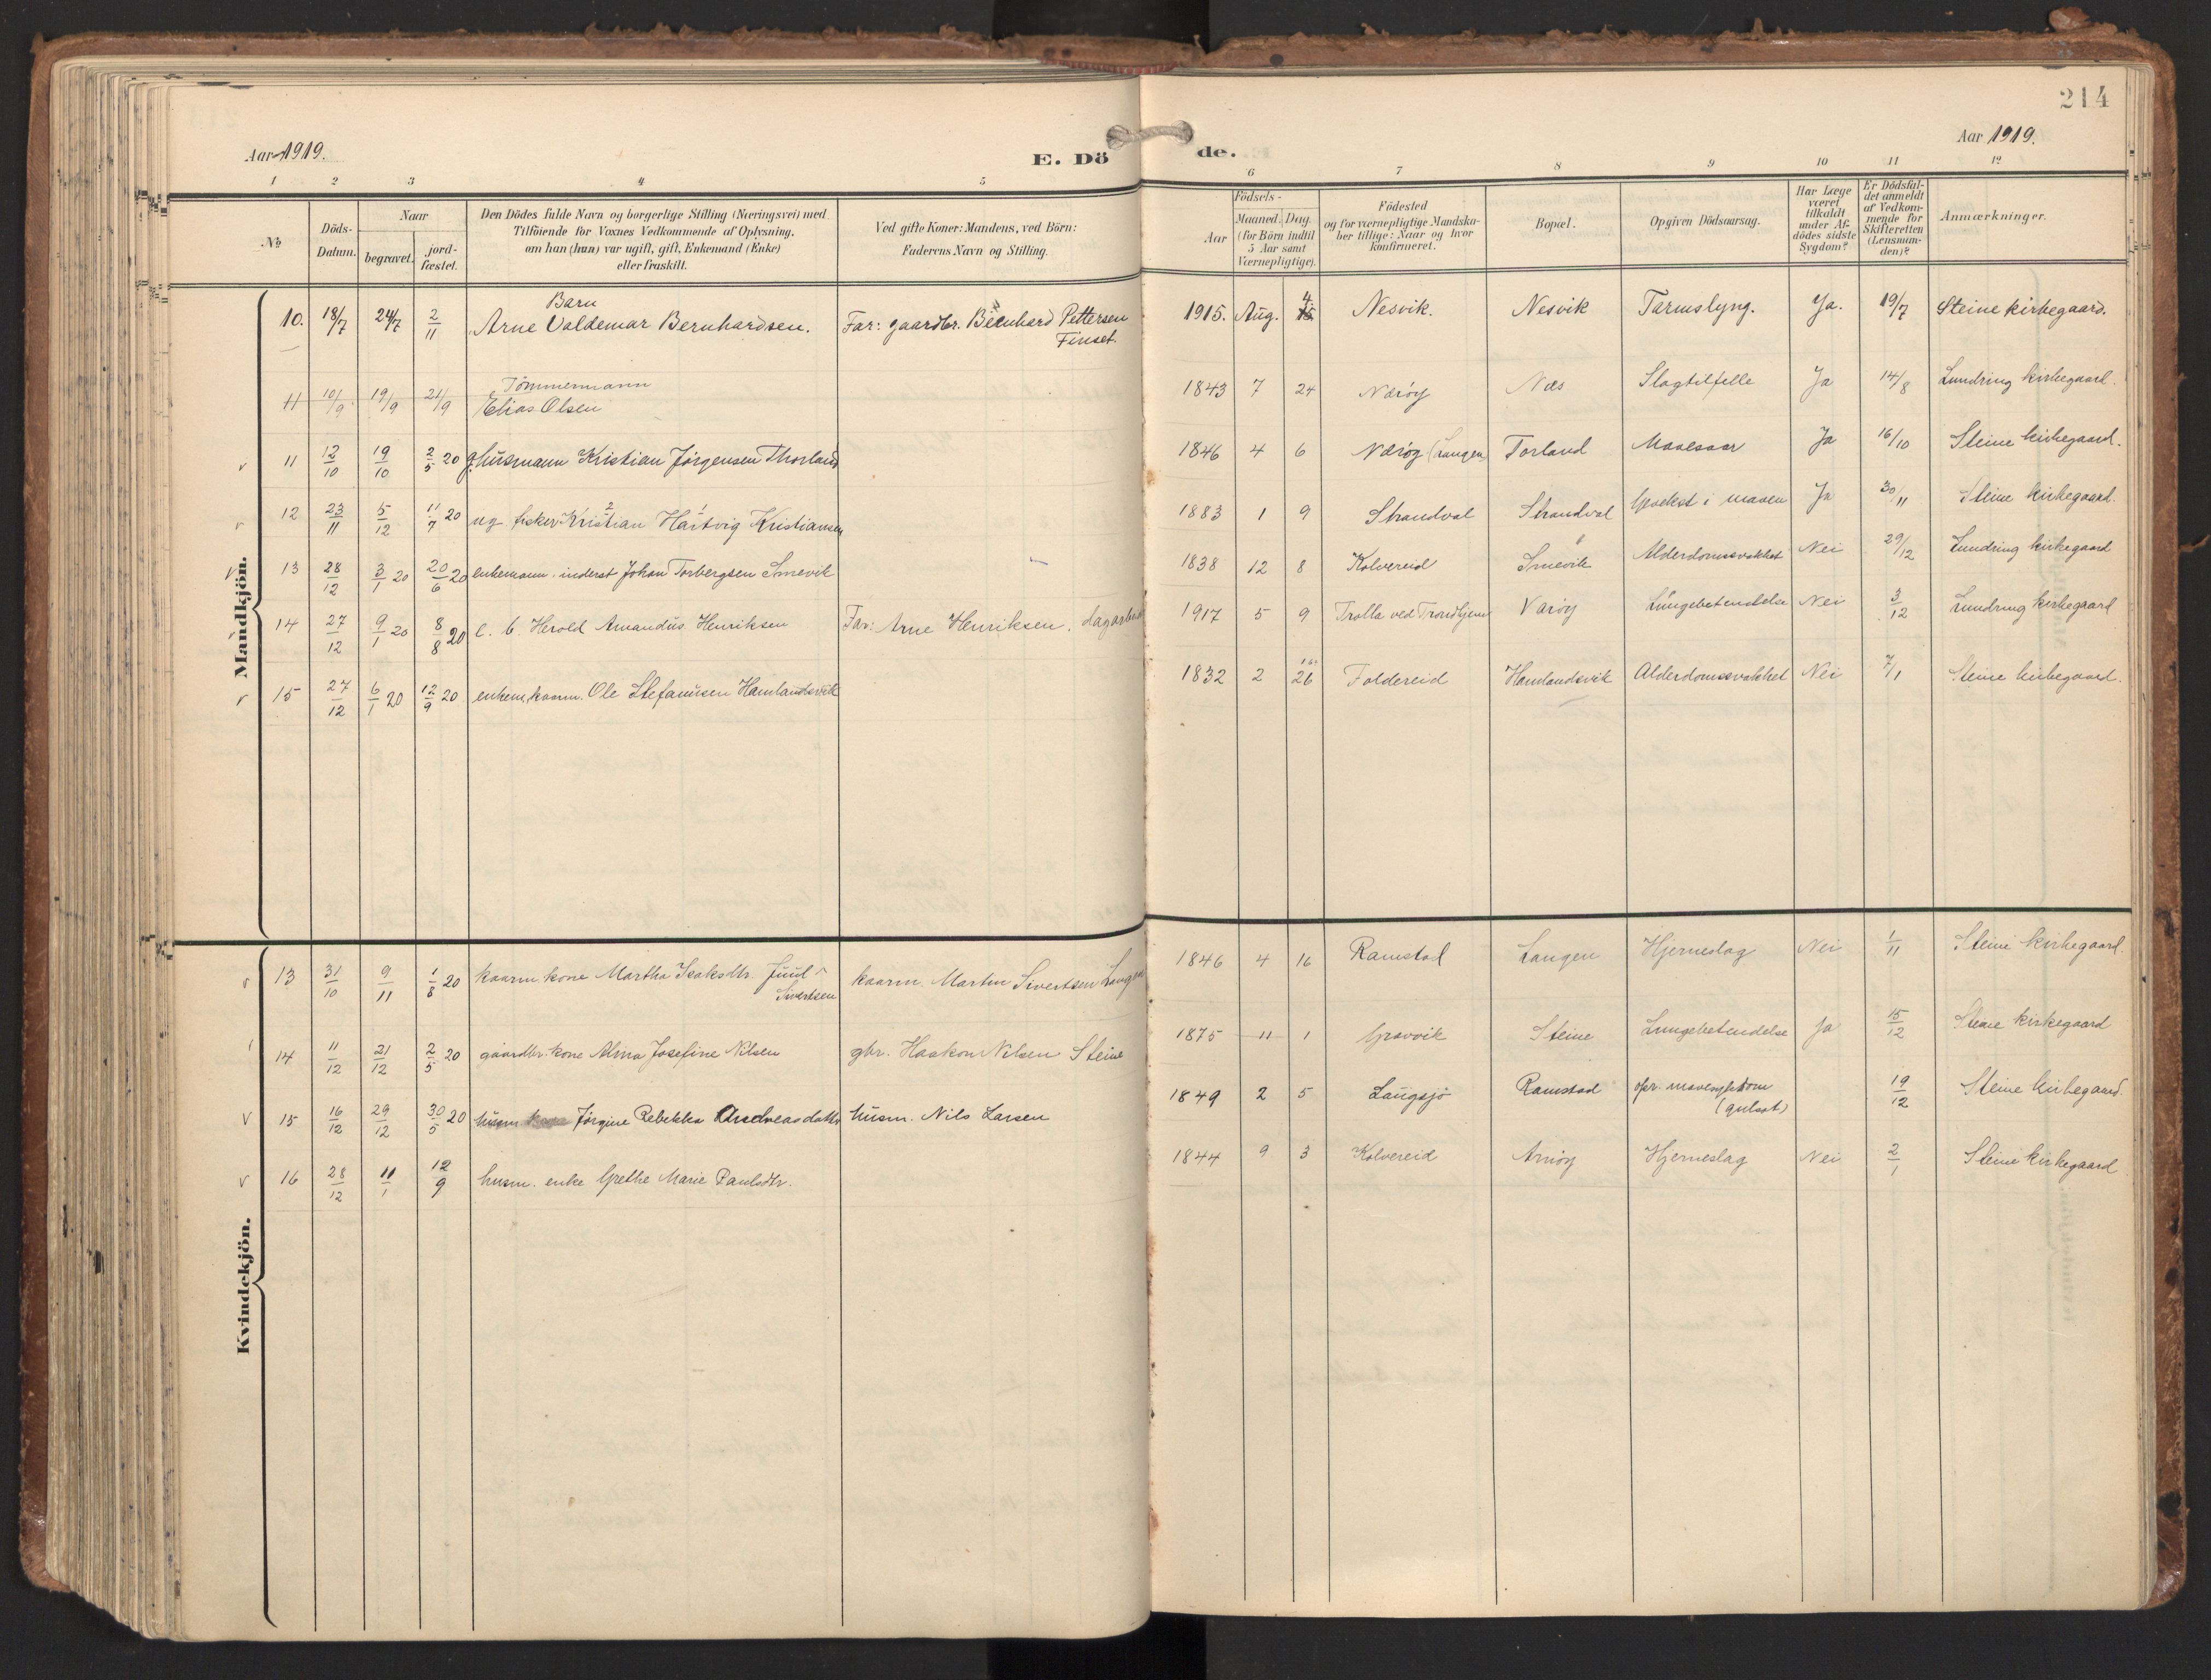 214
Aar 1919.
E. Dö
de.
Aar 1919.
1 2 3 4 5 6 7 8 9 10 11 12
No
Döds-
Datum.
Naar
begravet.
jord-
fæstet.
Den Dödes fulde Navn og borgerlige Stilling (Næringsvei) med
Tilföiende for Voxnes Vedkommende af Oplysning,
om han (hun) var ugift, gift, Enkemand (Enke)
eller fraskilt.
Ved gifte Koner: Mandens, ved Börn:
Faderens Navn og Stilling.
Födsels-
Aar
Maaned. Dag.
(for Börn indtil
5 Aar samt
Værnepligtige).
Födested
og for værnepligtige Mandska-
ber tillige: Naar og hvor
konfirmeret.
Bopæl.
Opgiven Dödsaarsag.
Har Læge
været
tilkaldt
under Af-
dödes sidste
Sygdom?
Er Dödsfal-
det anmeldt
af Vedkom-
mende for
Skifteretten
(Lensman-
den)?
Anmærkninger.
Mandkjön.
Barn
10. 18/7 24/7 2/11 Arne Valdemar Bernhardsen. Far: gaardbr. Bernhard Pettersen
Finset.
1915. Aug. 4. Nesvik. Nesvik Tarmslyng. Ja. 19/7 Steine kirkegaard.
Tømmermann
11 10/9 19/9 21/9 Elias Olsen 1843 7 24 Nærøy Næs Slagtilfelle Ja 14/8 Lundring kirkegaard.
v 11 12/10 19/10 2/5 20 g. husmann Kristian Jørgensen Thorland 1846 4 6 Nærøy (Langen) Torland Mavesaar Ja 16/10 Steine kirkegaard.
v 12 23/11 5/12 11/7 20 ug. fisker Kristian Hartvig Kristiansen 1883 1 9 Strandval Strandval Gvekst i maven Ja 30/11 Steine kirkegaard.
v 13 28/12 3/1 20 20/6 20 enkemann. inderst Johan Torbergsen Smevik 1838 12 8 Kolvereid Smevik Alderdomssvakhet Nei 29/12 Lundring kirkegaard
14 27/12 9/1 20 8/8 20 e. b. Herold Amandus Henriksen Far: Arne Henriksen, dagarbeid 1917 5 9 Trolla ved Trondhjem Varøy Lungebetendelse Nei 3/12 Lundring kirkegaard
v 15 27/12 6/1 20 12/9 20 enkem. kaarm. Ole Stefanusen Hamlandsvik 1832 2 26 Foldereid Hamlandsvik Alderdomssvakhet Nei 7/1 Steine kirkegaard.
Kvindekjön.
v 13 31/10 9/11 1/8 20 kaarm. kone Martha Isaksdtr. Juul
Sivertsen
kaarm. Martin Sivertsen Langen 1846 4 16 Ramstad Langen Hjerneslag Nei 1/11 Steine kirkegaard.
14 11/12 21/12 2/5 20 gaardbr. kone Alma Josefine Nilsen gbr. Haakon Nilsen Steine 1875 11 1 Gravvik Steine Lungebetendelse Ja 15/12 Steine kirkegaard
v 15 16/12 29/12 30/5 20 husm. kone Jørgine Rebekka Andreasdatter husm. Nils Larsen 1849 2 5 Langsjø Ramstad opr. mavesykdom
(gulsot)
19/12 Steine kirkegaard.
v 16 28/12 11/1 12/9 husm. enke Grethe Marie Paulsdtr. 1844 9 3 Kolvereid Arnøy Hjerneslag Nei 2/1 Steine kirkegaard